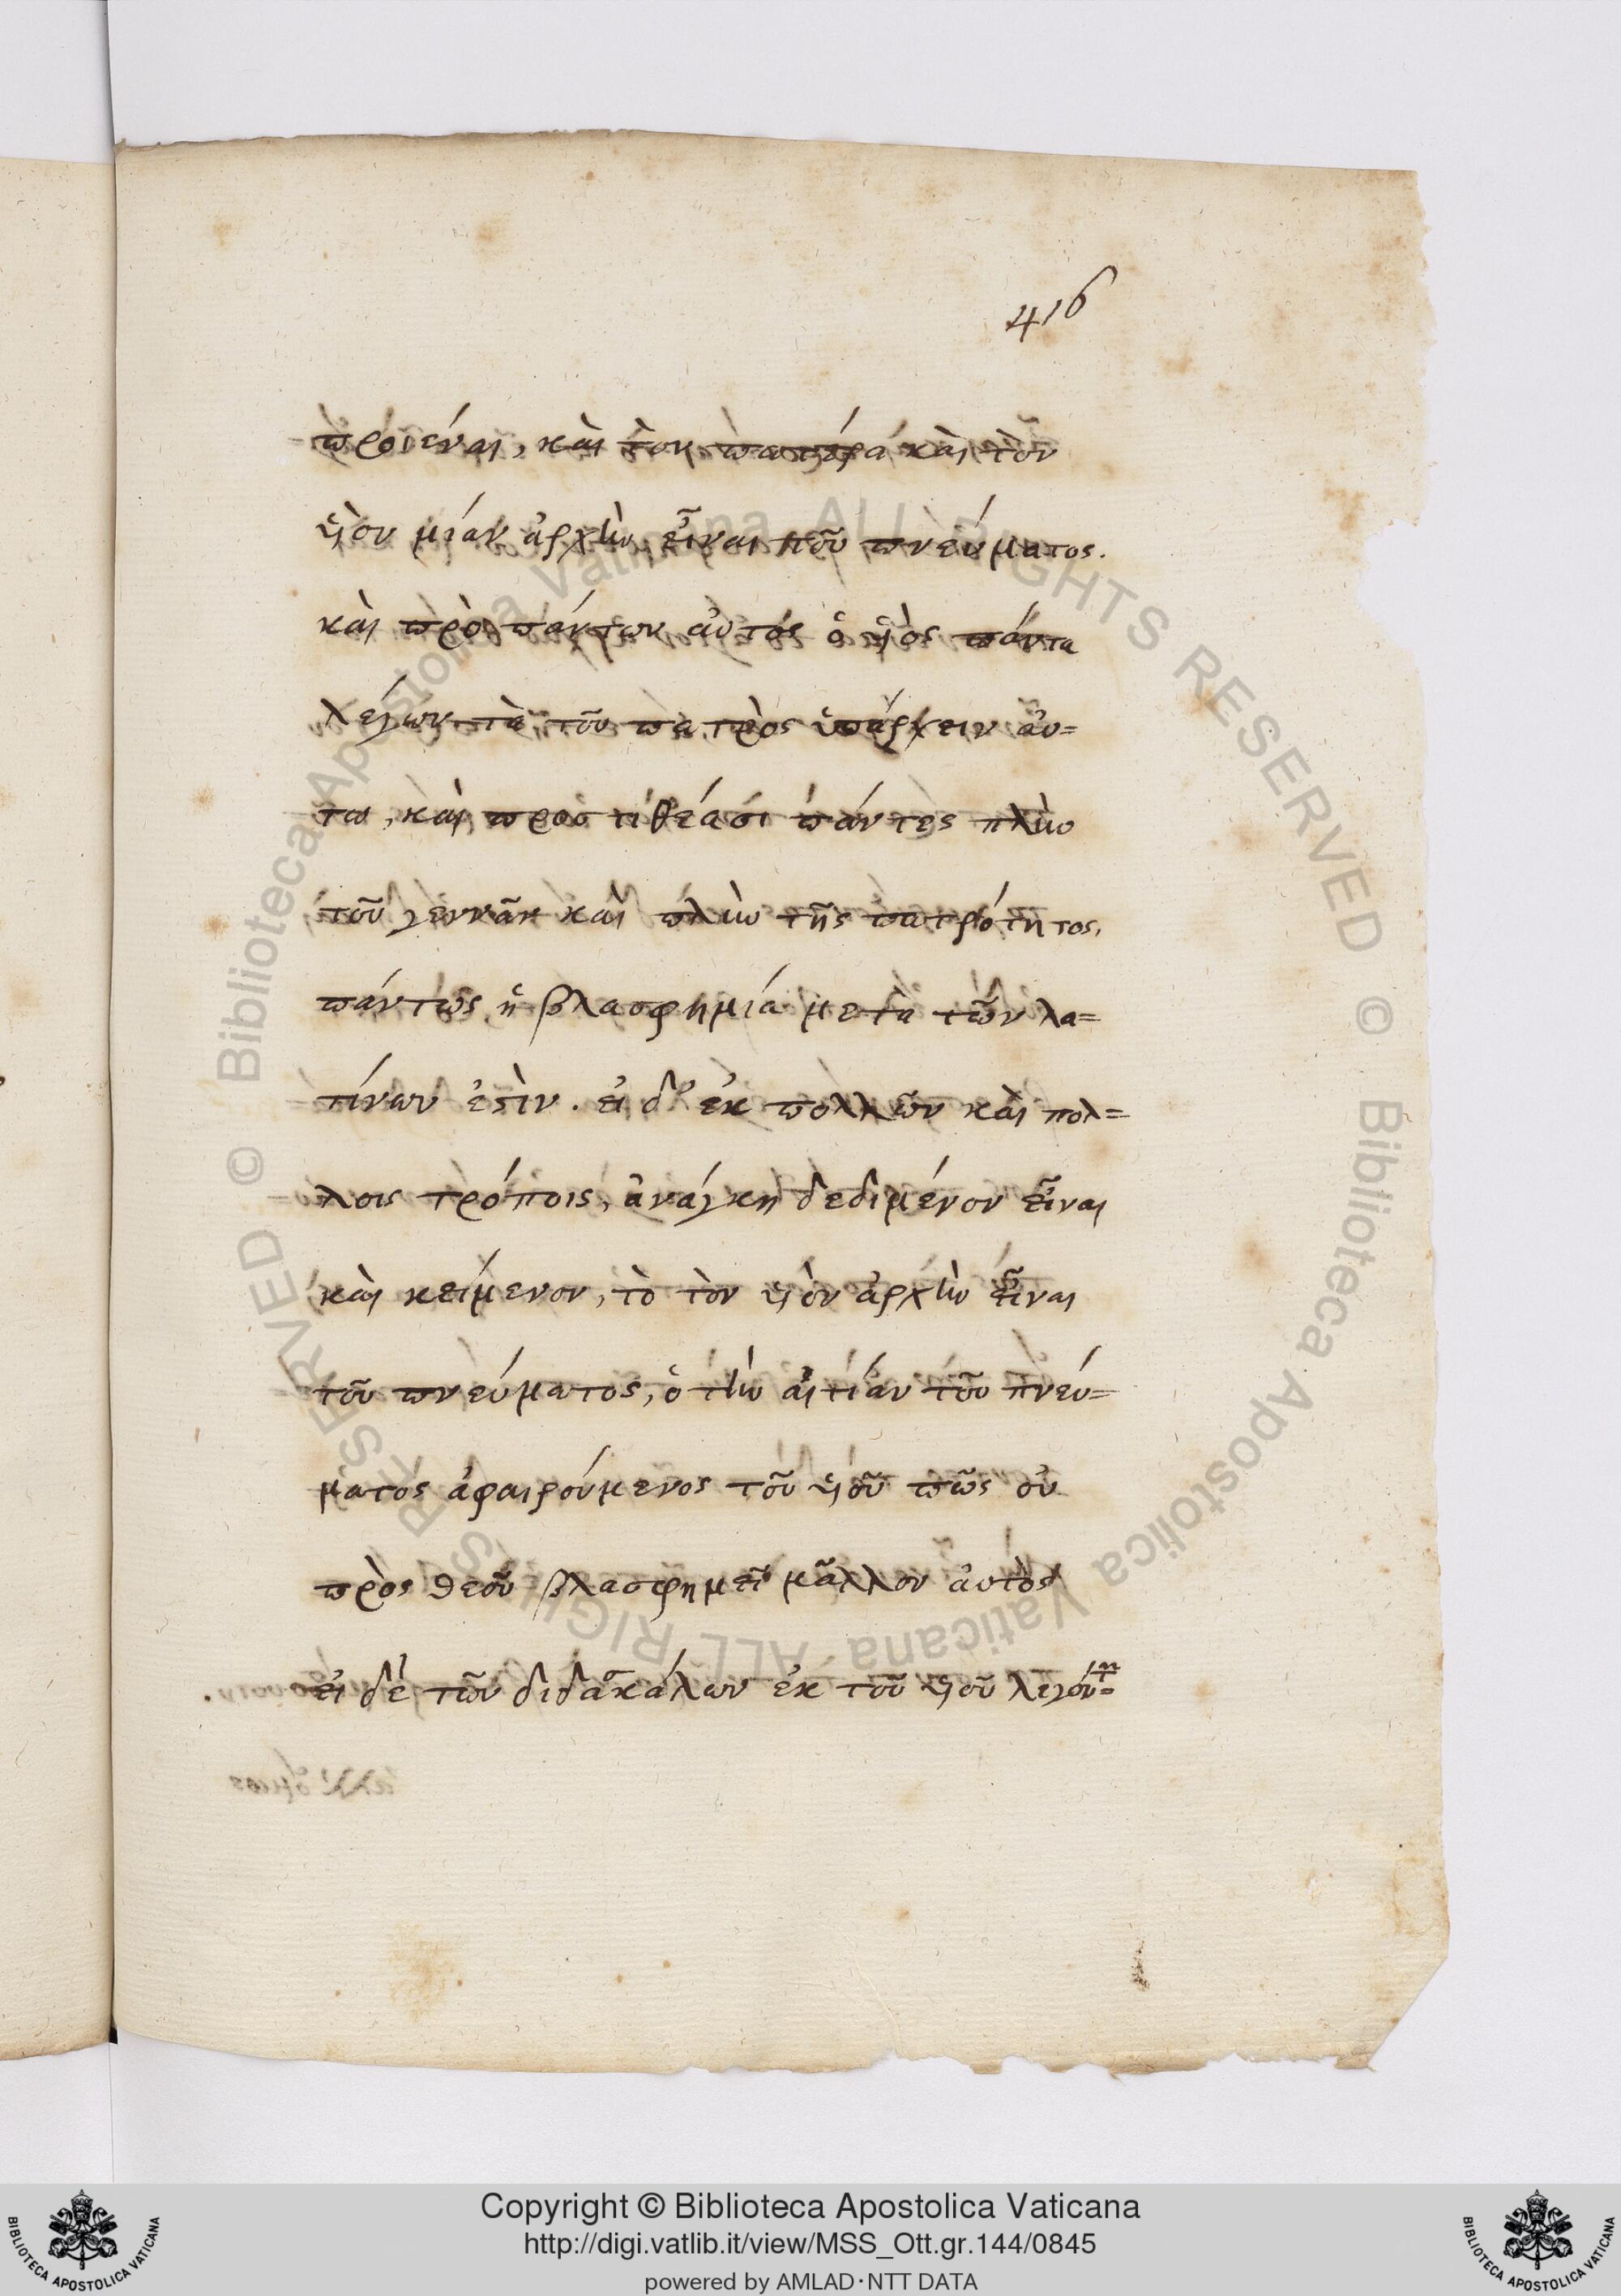 416
προϊέναι, καὶ τὸν πατέρα καὶ τὸν
ὑιὸν μίαν ἀρχὴν εἶναι τοῦ πνεύματος.
καὶ πρὸ πάντων αὐτὸς ὁ ὑιὸς πάντα
λέγων τὰ τοῦ πατρὸς ὑπάρχειν ἀυ=
τω, καὶ προστιθέασι πάντες πλὴν
τοῦ γεννᾶν καὶ πλὴν τῆς πατρότητος,
πάντως ἡ βλασφημία μετὰ τῶν λα=
τίνων ἐστὶν. εἰ δ' ἐκ πολλῶν καὶ πολ=
λοις τρόποις, ἀνάγκη δεδιμένον εἶναι
καὶ κείμενον, τὸ τὸν ὑιὸν ἀρχὴν εἶναι
τοῦ πνεύματος, ὁ τὴν αἰτίαν τοῦ πνεύ=
ματος ἀφαιρούμενος τοῦ ὑιοῦ πῶς οὐ
πρὸς θεοῦ βλασφημεῖ μᾶλλον ἀυτὸς
εἰ δὲ τῶν διδασκάλων ἐκ τοῦ ὑιοῦ λεγόντ=
© Biblioteca Apostolica Vaticana ALL RIGHTS RESERVED
© Biblioteca Apostolica Vaticana ALL RIGHTS RESERVED
Copyright © Biblioteca Apostolica Vaticana
http://digi.vatlib.it/view/MSS_Ott.gr.144/0845
powered by AMLAD·NTT DATA
BIBLIOTECA APOSTOLICA VATICANA
BIBLIOTECA APOSTOLICA VATICANA